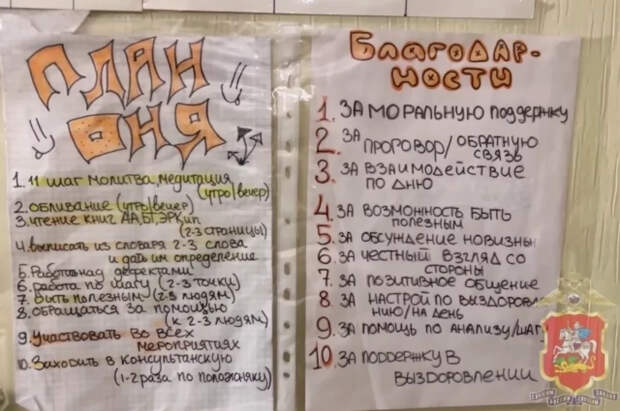 ПЛАН
ДНЯ
1. 11 ШАГ МОЛИТВА, МЕДИТАЦИЯ
(УТРО/ВЕЧЕР)
2. ОБЛИВАНИЕ (УТРО/ВЕЧЕР)
3. ЧТЕНИЕ КНИГ АА, БТ, ЭРК, ИП
(2-3 СТРАНИЦЫ)
4. ВЫПИСАТЬ ИЗ СЛОВАРЯ 2-3 СЛОВА
И ДАТЬ ИМ ОПРЕДЕЛЕНИЕ
5. РАБОТА НАД ДЕФЕКТАМИ
6. РАБОТА ПО ШАГУ (2-3 ТОЧКИ)
7. БЫТЬ ПОЛЕЗНЫМ (2-3 ЛЮДЯМ)
8. ОБРАЩАТЬСЯ ЗА ПОМОЩЬЮ
(К 2-3 ЛЮДЯМ)
9. УЧАСТВОВАТЬ ВО ВСЕХ
МЕРОПРИЯТИЯХ
10. ЗАХОДИТЬ В КОНСУЛЬТАНСКУЮ
(1-2 РАЗА ПО ПОЛОЖНЯКУ)
БЛАГОДАР-
НОСТИ
1. ЗА МОРАЛЬНУЮ ПОДДЕРЖКУ
2. ЗА
ПРОГОВОР/ОБРАТНУЮ
СВЯЗЬ
3. ЗА ВЗАИМОДЕЙСТВИЕ
ПО ДНЮ
4. ЗА ВОЗМОЖНОСТЬ БЫТЬ
ПОЛЕЗНЫМ
5. ЗА ОБСУЖДЕНИЕ НОВИЗНЫ
6. ЗА ЧЕСТНЫЙ ВЗГЛЯД СО
СТОРОНЫ
7. ЗА ПОЗИТИВНОЕ ОБЩЕНИЕ
8 ЗА НАСТРОЙ ПО ВЫЗДОРОВЛЕ
НИЮ/НА ДЕНЬ
9. ЗА ПОМОЩЬ ПО АНАЛИЗУ/ШАГУ
10. ЗА ПОДДЕРЖКУ В
ВЫЗДОРОВЛЕНИИ